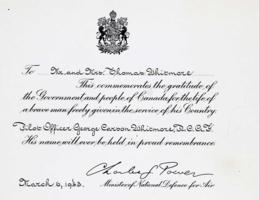 To Mr. and Mrs. Thomas Whitmore
This commemorates the gratitude of
the Government and people of Canada for the life of
a brave man freely given in the service of his Country.
Pilot Officer George Carson Whitmore, R.C.A.F.
His name will ever be held in proud remembrance
Charles G. Power
March 6, 1943. Minister of National Defence for Air